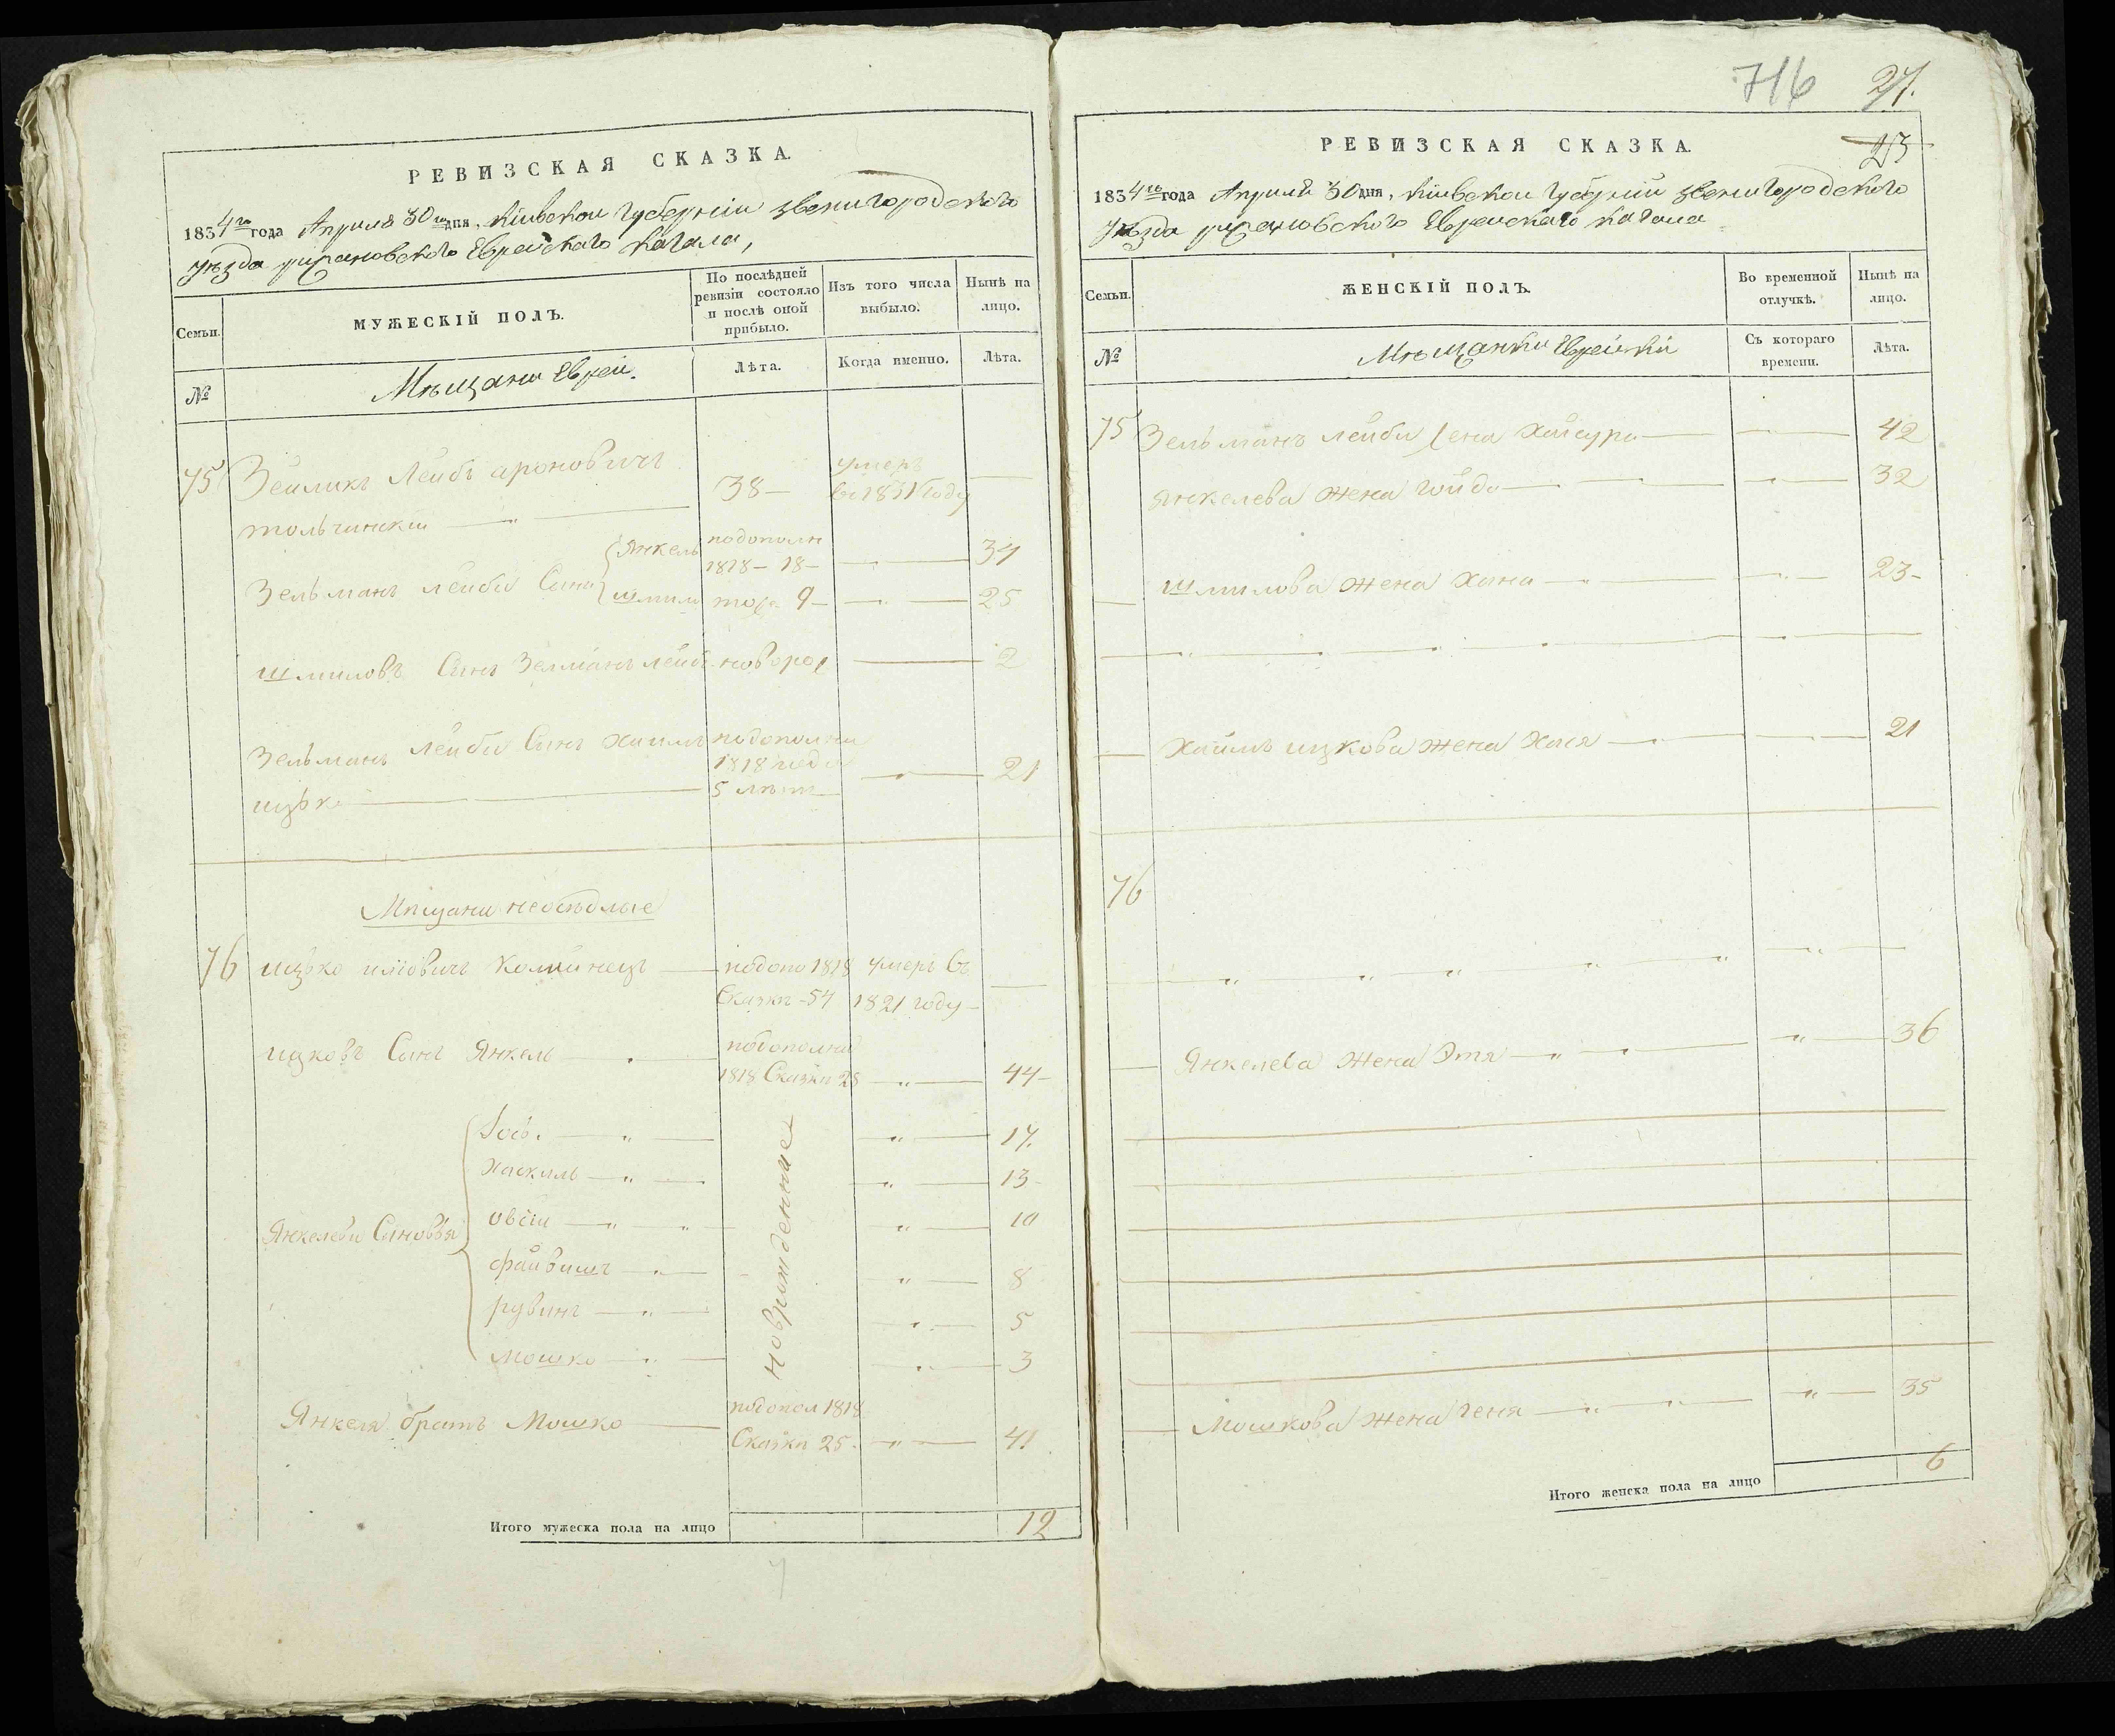 РЕВИЗСКАЯ СКАЗКА.
1834го года Апреля 30го дня, Кіивскои Губерніи Звенигородского
уезда Еврейскаго Кагала,
Семьи.
МУЖЕСКІЙ ПОЛЪ.
По послѣдней ревизіи состояло и послѣ оной прибыло.
Изъ того числа выбыло.
Нынѣ на лицо.
№
Мѣщани Евреи.
Лѣта.
Когда именно.
Лѣта.
75 Зейликъ Лейбъ ароновичъ 38 — умеръ въ 1831 году
толчинскій
Зельманъ лейби Сини { Янкель подополн 1818 — 18 — 34
шмиль 9 — 25
шмиловъ Синъ Зелманъ лейб новорож 2
Зельманъ Лейби Синъ Хаимъ подополни 1818 года 5 лѣтъ 21
ицько
Мѣщани неосѣдлые
76 ицько Каминецъ — подопо 1818 Сказки — 54 умеръ въ 1821 году —
ицковъ Синъ Янкель — подополни 1818 Сказки 28 — " — 44 —
Янкелеви Синовья
Іось — " — " — 17.
Хаскиль — " — " — 13
овсій — " — " — " — 10
файвишъ — " — " — 8
рувинъ — " — " — 5
мошко — " — " — 3
новрожденние
Янкеля братъ Мошко — подопол 1818 Сказки 25. — " — 41
Итого мужеска пола на лицо 12
716 27.
23
РЕВИЗСКАЯ СКАЗКА.
1834го года Апреля 30 дня, Кіивскои Губерніи Звенигородского
Уезда Еврейскаго Кагала
Семьи.
ЖЕНСКІЙ ПОЛЪ.
Во временной отлучкѣ.
Нынѣ на лицо.
№
Мѣщанки Еврейскіи
Съ котораго времени.
Лѣта.
75 Зельманъ лейби жена Хайсура — 42
Янкелева жена — 32
— шмилова жена Хана — 23 —
— Хаимъ ицкова жена Хая — 21
76
— Янкелева жена Этя — " — 36
— Мошкова жена геня — " — 35
Итого женска пола на лицо 6